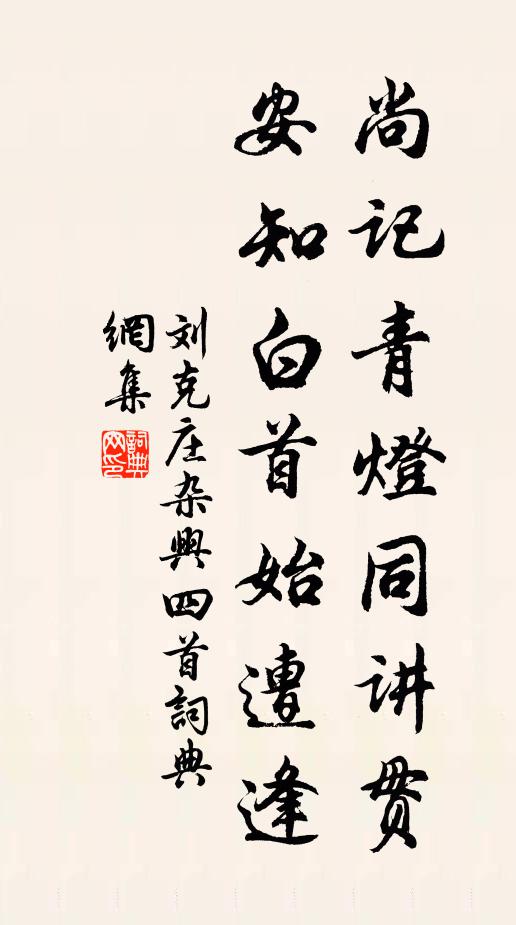 尚记青燈同讲贯
安知白首始遭逢
刘克庄杂興四首詞典
網集
詞典
网印